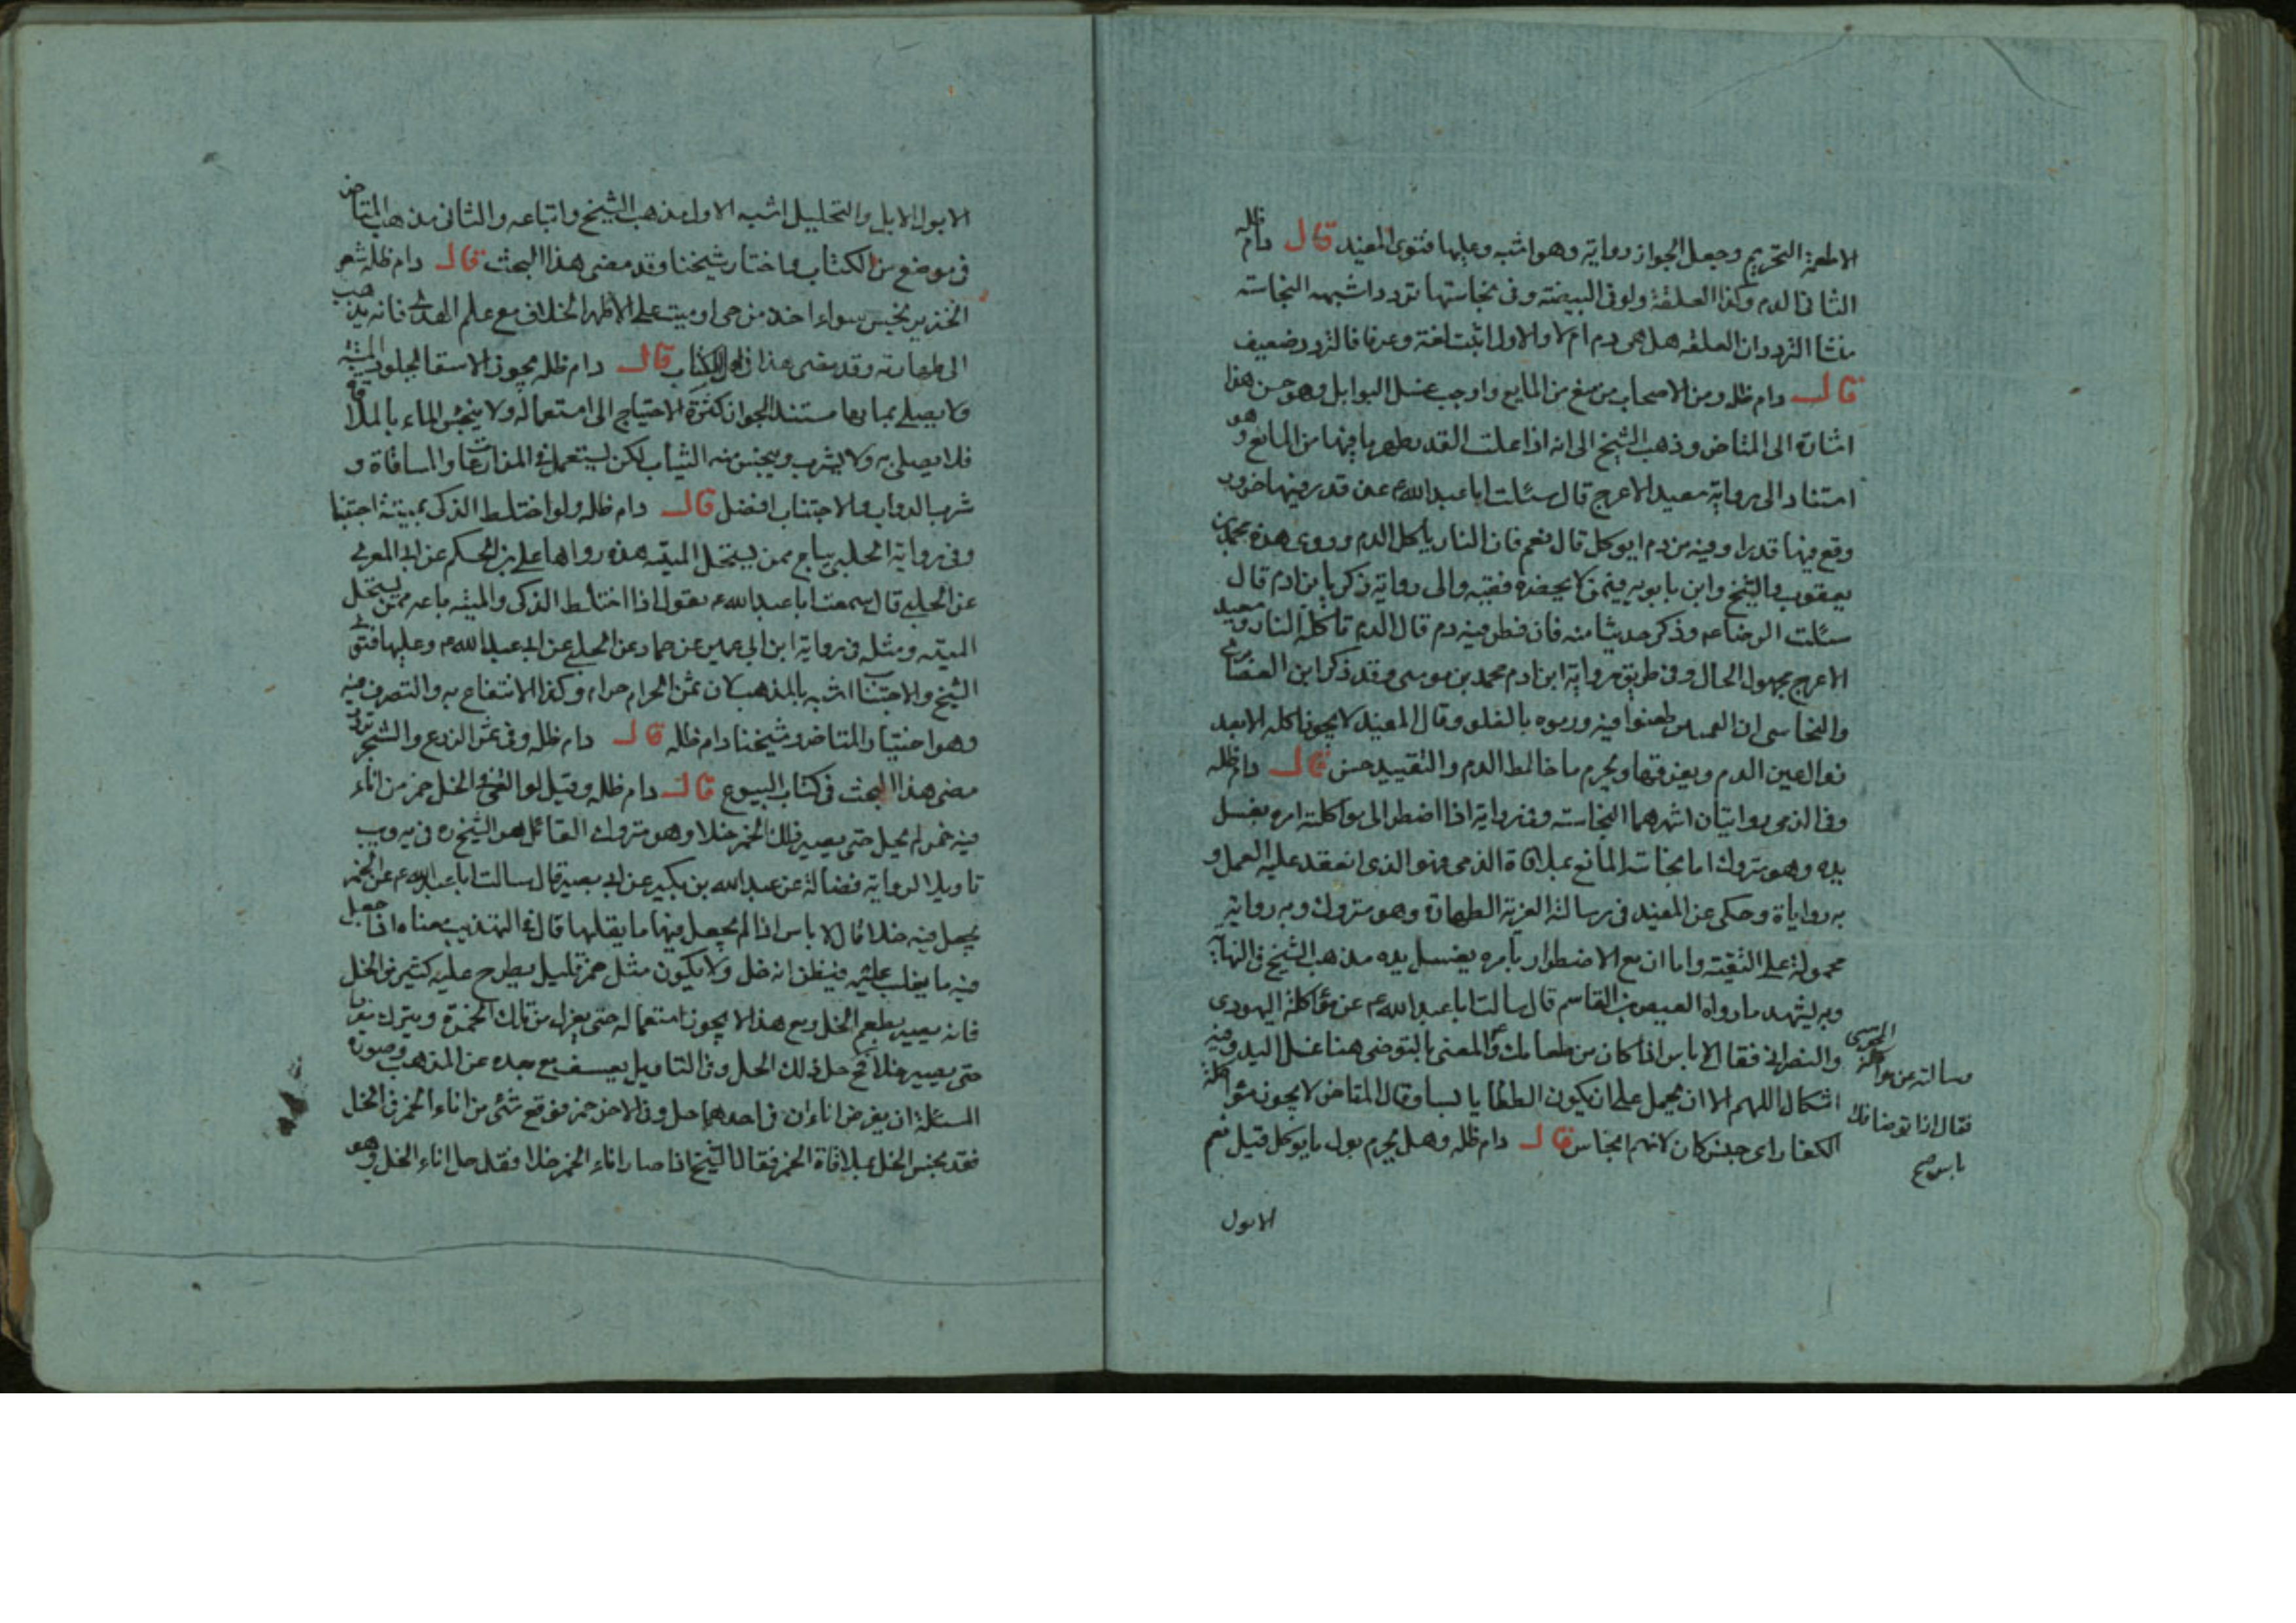 الاطعمة التحريم وجعل الجواز رواية وهو اشبه وعليها فتوى المفيد قال دام ظله
الثانى الدم وكذا العلقة ولو فى البيضة وفى نجاستها تردد اشبهه النجاسة
منشا التردد ان العلقه هل هى دم ام لا والاول اثبت لغة وعرفا فالتردد ضعيف
قال دام ظله ومن الاصحاب من منع من المايع واوجب غسل التوابل وهو حسن هذا
اشارة الى المتاخر وذهب الشيخ الى انه اذا غلت القدر يطهر ما فيها من المايع وهو
استنادا الى رواية سعيد الاعرج قال سئلت ابا عبدالله ع عن قدر فيها جزور
وقع فيها قدر اوقية من دم ايوكل قال نعم فان النار ياكل الدم وروى هذه محمد بن
يعقوب والشيخ وابن بابويه فيمن لا يحضره فقيه والى رواية زكريا بن ادم قال
سئلت الرضا ع وذكر حديثا منه فان قطر فيه دم قال الدم تاكله النار وسعيد
الاعرج مجهول الحال وفى طريق رواية ابن ادم محمد بن موسى وقد ذكر ابن الغضايرى
والنجاسى ان القميين طعنوا فيه ورموه بالغلو وقال المفيد لا يجوز اكله الا بعد
زوال عين الدم وتفرقها ويحرم ما خالط الدم والتقييد حسن قال دام ظله
وفى الذمى روايتان اشهرهما النجاسة وفى رواية اذا اضطر الى مواكلته امره بغسل
يده وهو متروك اما نجاسة المائع بملاقاة الذمى فهو الذى انعقد عليه العمل و
به روايات وحكى عن المفيد فى رسالة العزية الطهارة وهو متروك وبه رواية
محمولة على التقية واما ان مع الاضطرار يامره بغسل يده مذهب الشيخ فى النهاية
وبه يشهد ما رواه العيص بن القاسم قال سالت ابا عبدالله ع عن مؤاكلة اليهودى
والنصرانى فقال لا باس اذا كان من طعامك والمعنى بالتوضى هنا غسل اليد وفيه
اشكال اللهم الا ان يحمل على ان يكون الطعام يابسا وقال المتاخر لا يجوز مؤاكلة
الكفار اى جنس كان لانهم انجاس قال دام ظله وهل يحرم بول ما يوكل قيل نعم
المجوسى
وسالته عن مواكلة
فقال اذا توضا فلا
باس صح
الابول
الا بول الابل والتحليل اشبه الاول مذهب الشيخ واتباعه والثانى مذهب المتاخر
فى موضع من الكتاب واختار شيخنا وقد مضى هذا البحث قال دام ظله شعر
الخنزير نجس سواء اخذ من حى او ميت على الاظهر الخلاف مع علم الهدى فانه يذهب
الى طهارته وقد مضى هذا فى اول الكتاب قال دام ظله يجوز الاستقا بجلود الميتة
ولا يصلى بمايها مستند الجواز كثرة الاحتياج الى استعماله ولا ينجس الماء بالملاقاة
فلا يصلى به ولا يشرب وينجس منه الثياب لكن يستعمل فى المزارعات والمساقاة و
شرب الدواب والاجتناب افضل قال دام ظله ولو اختلط الذكى بميتة اجتنبا
وفى رواية الحلبى يباع ممن يستحل الميتة هذه رواها على بن الحكم عن ابى المعزى
عن الحلبى قال سمعت ابا عبدالله ع يقول اذا اختلط الذكى والميتة باعه ممن يستحل
الميتة ومثله فى رواية ابن ابى عمير عن حماد عن الحلبى عن ابى عبدالله ع وعليها فتوى
الشيخ والاجتناب اشبه بالمذهب لان ثمن الحرام حرام وكذا الانتفاع به والتصرف فيه
وهو اختيار المتاخر وشيخنا دام ظله قال دام ظله وفى ثمن الزرع والشجر تردد
مضى هذا البحث فى كتاب البيوع قال دام ظله وقيل لو القى فى الخل خمر من اناء
فيه خمر لم يحل حتى يصير ذلك الخمر خلا وهو متروك القائل هو الشيخ ره فى يه ويب
تاويلا لرواية فضالة عن عبدالله بن بكير عن ابى بصير قال سالت ابا عبدالله ع عن الخمر
يجعل فيه خلا قال لا باس اذا لم يجعل فيها ما يقلبها قال فى التهذيب معناه اذا جعل
فيه ما يغلب عليه فيظن انه خل ولا يكون مثل خمر قليل يطرح عليه كثير من الخل
فانه يصير بطعم الخل ومع هذا لا يجوز استعماله حتى يعزل من تلك الخمرة ويترك مفردا
حتى يصير خلا فح حل ذلك الخل وفى التاويل تعسف مع بعده عن المذهب وصورة
المسئلة ان يفرض اناءان فى احدهما خل وفى الاخر خمر فوقع شئ من اناء الخمر فى الخل
فقد نجس الخل بملاقاة الخمر فقال الشيخ اذا صار اناء الخمر خلا فقد حل اناء الخل وهو